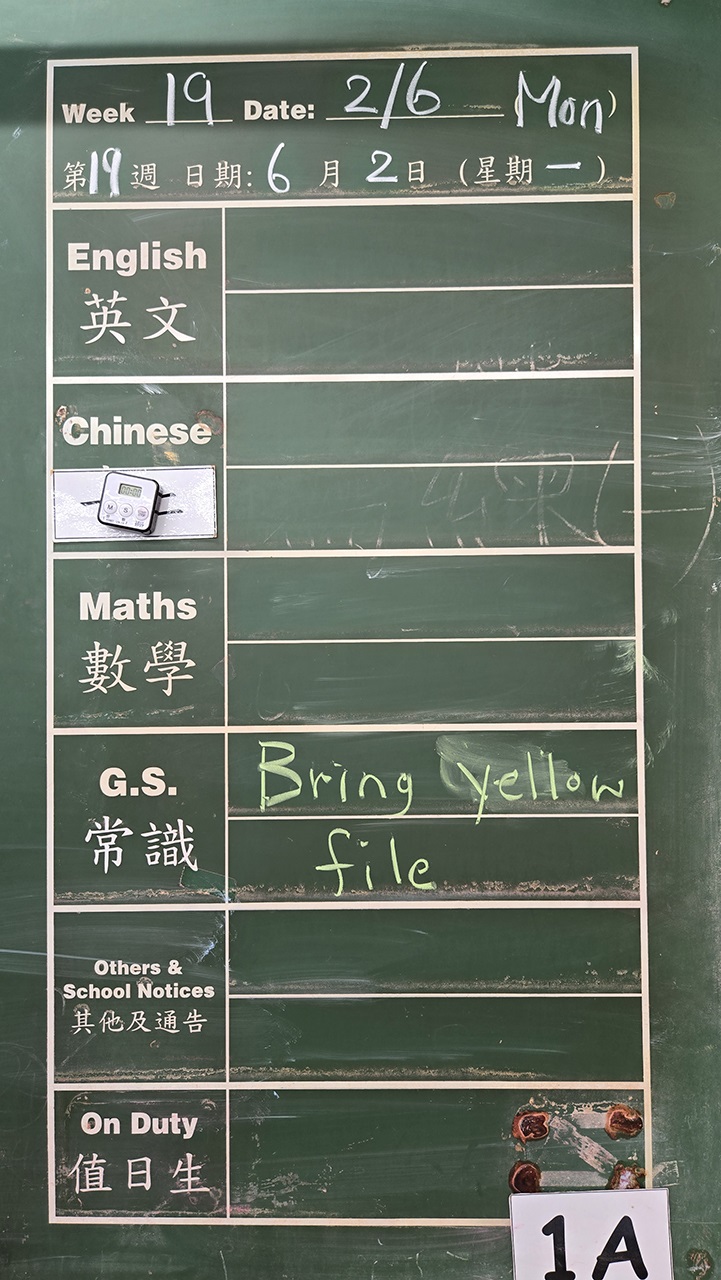 Week 19 Date: 2/6 (Mon)
第19週 日期: 6月2日 (星期一)
English
英文
Chinese
M S
Maths
數學
G.S.
常識
Bring yellow
file
Others &
School Notices
其他及通告
On Duty
值日生
1A